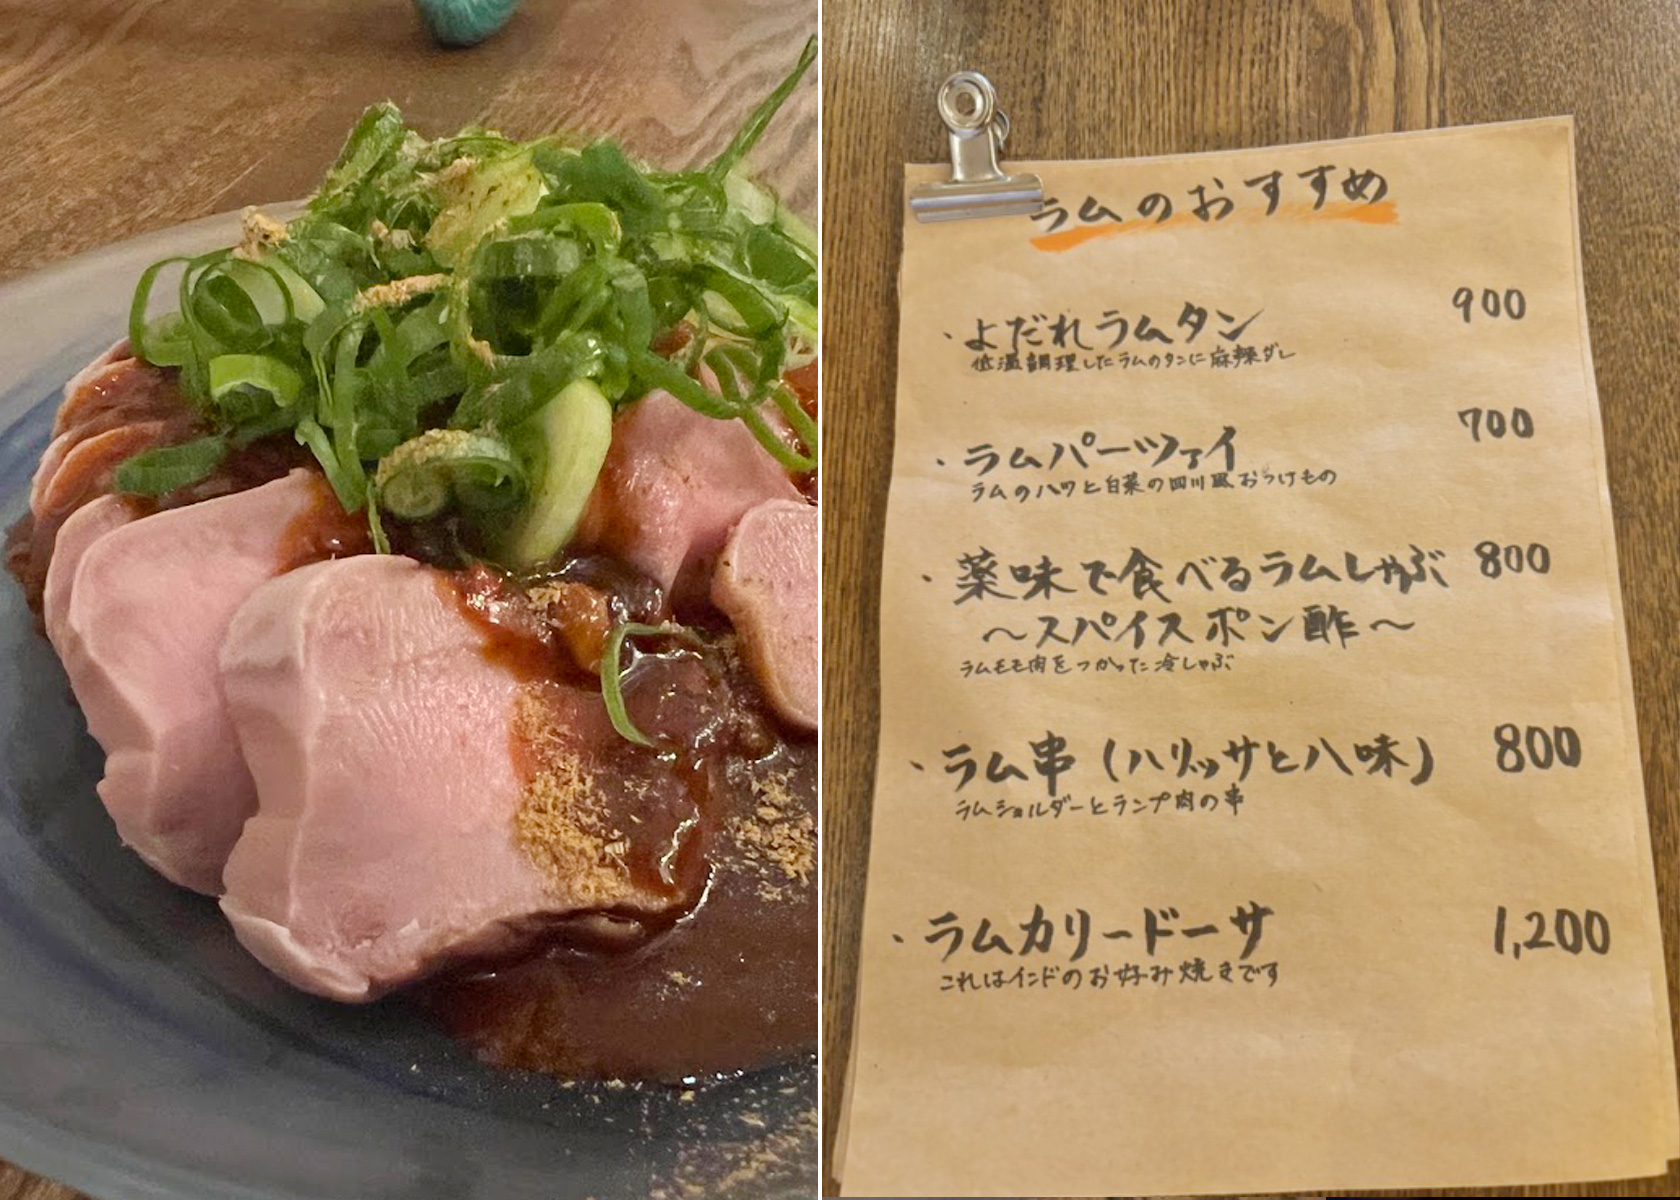 ラムのおすすめ
・よだれラムタン 900
低温調理したラムのタンに麻辣ダレ
・ラムパーツァイ 700
ラムのハツと白菜の四川風おつけもの
・薬味で食べるラムしゃぶ 800
〜スパイスポン酢〜
ラムモモ肉をつかった冷しゃぶ
・ラム串(ハリッサと八味) 800
ラムショルダーとランプ肉の串
・ラムカリードーサ 1,200
これはインドのお好み焼きです